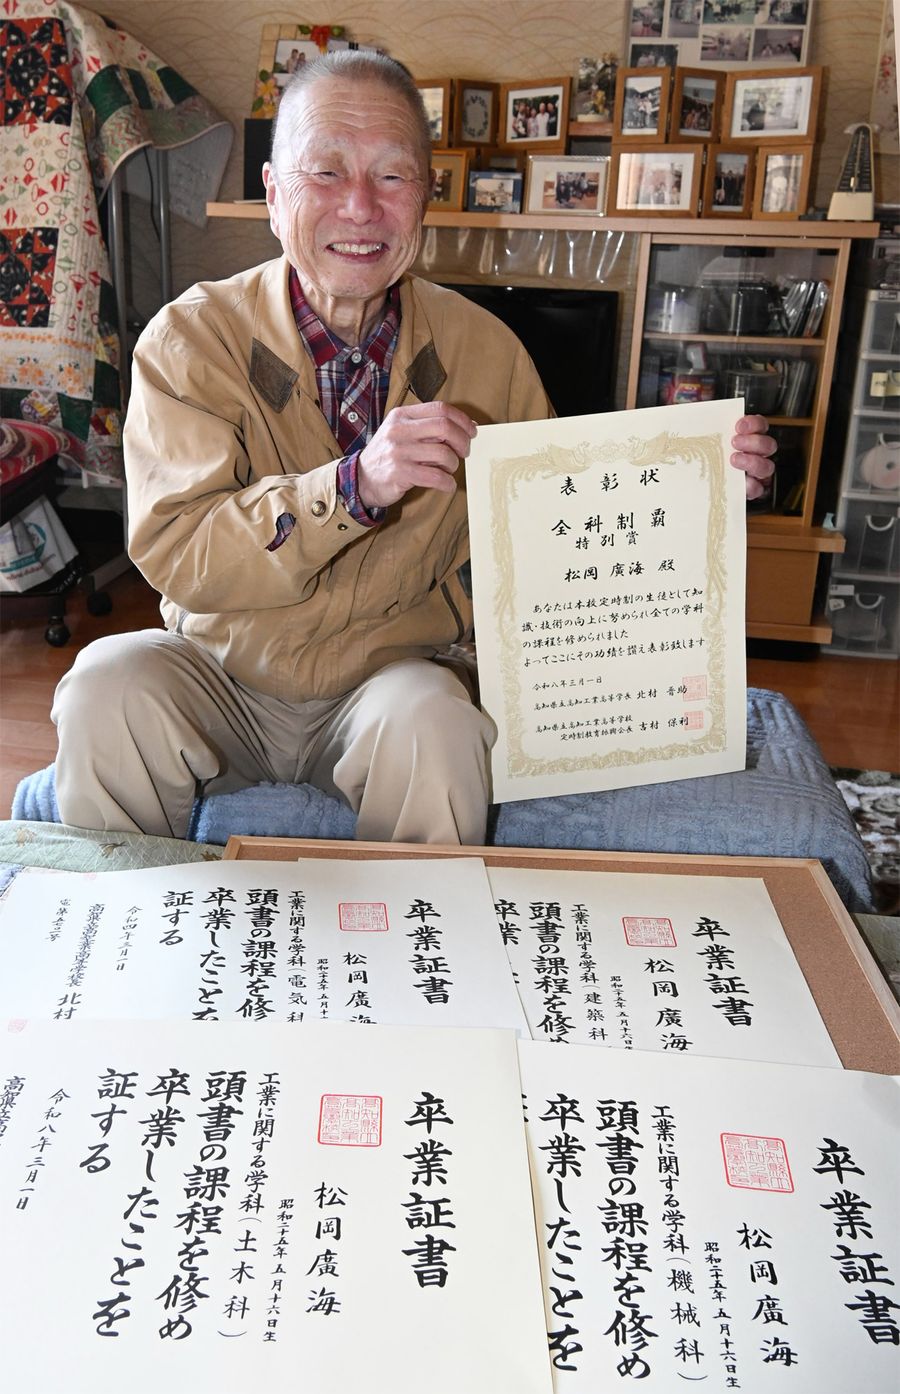 表彰状
全科制覇
特別賞
松岡 廣海 殿
あなたは本校定時制の生徒として知
識・技術の向上に努められ全ての学科
の課程を修められました
よってここにその功績を讃え表彰致します
令和八年三月一日
高知県立高知工業高等学校長 北村 晋助
高知県立高知工業高等学校
定時制教育振興会長 吉村 保利
卒業証書
松岡廣海
昭和二十五年五月十
工業に関する学科(電気科
頭書の課程を修
卒業したことを
証する
令和四年三月一日
北村
卒業証書
松岡廣海
昭和二十五年五月十六日生
工業に関する学科(建築科
頭書の課程を修め
卒業
卒業証書
松岡廣海
昭和二十五年五月十六日生
工業に関する学科(土木科)
頭書の課程を修め
卒業したことを
証する
令和八年三月一日
卒業証書
松岡廣海
昭和二十五年五月十六日生
工業に関する学科(機械科)
頭書の課程を修め
卒業したことを